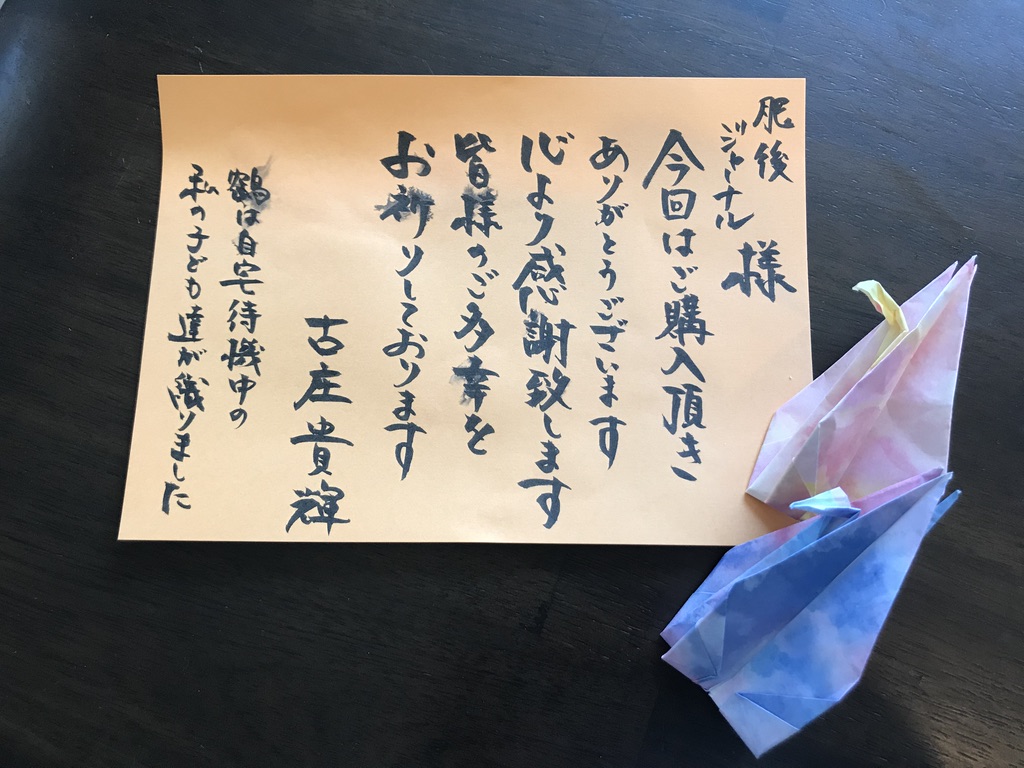 肥後
ジャーナル
様
今回はご購入頂き
ありがとうございます
心より感謝致します
皆様のご多幸を
お祈りしております
古庄貴輝
鶴は自宅待機中の
私の子ども達が織りました